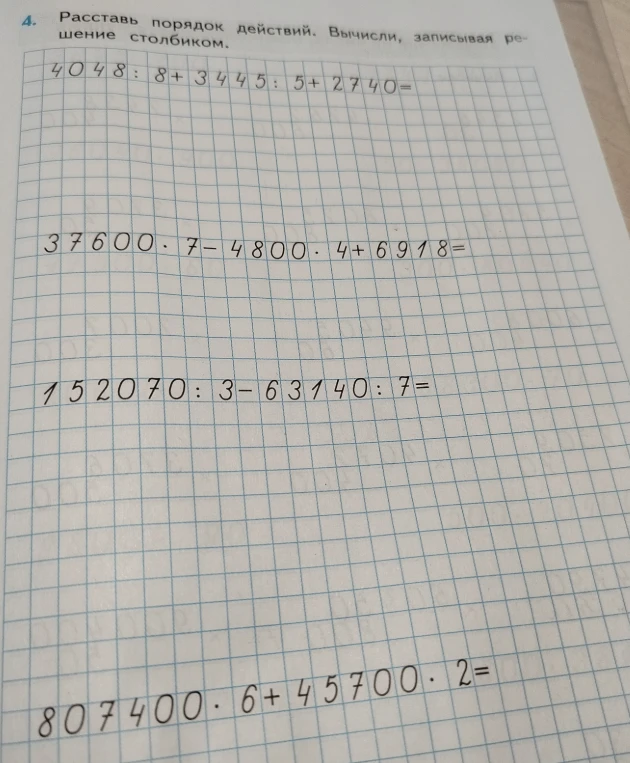 4. Расставь порядок действий. Вычисли, записывая ре-
шение столбиком.
4048 : 8 + 3445 : 5 + 2740 =
37600 · 7 – 4800 · 4 + 6918 =
152070 : 3 – 63140 : 7 =
807400 · 6 + 45700 · 2 =